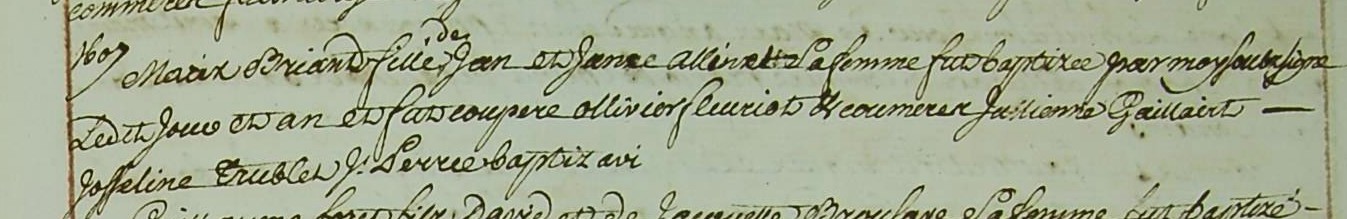 commeres
1607 Marie Briand fille de Jan et Janne Allinet Sa femme fut baptizee par moy soubsigne
Ledit Jour et an et fut coupere Ollivier fleuriot & coumeres Jullienne Gaillairt —
Josseline Trublet J. Perree baptizavi
fils David et de Jacquette Sa femme fut baptizé